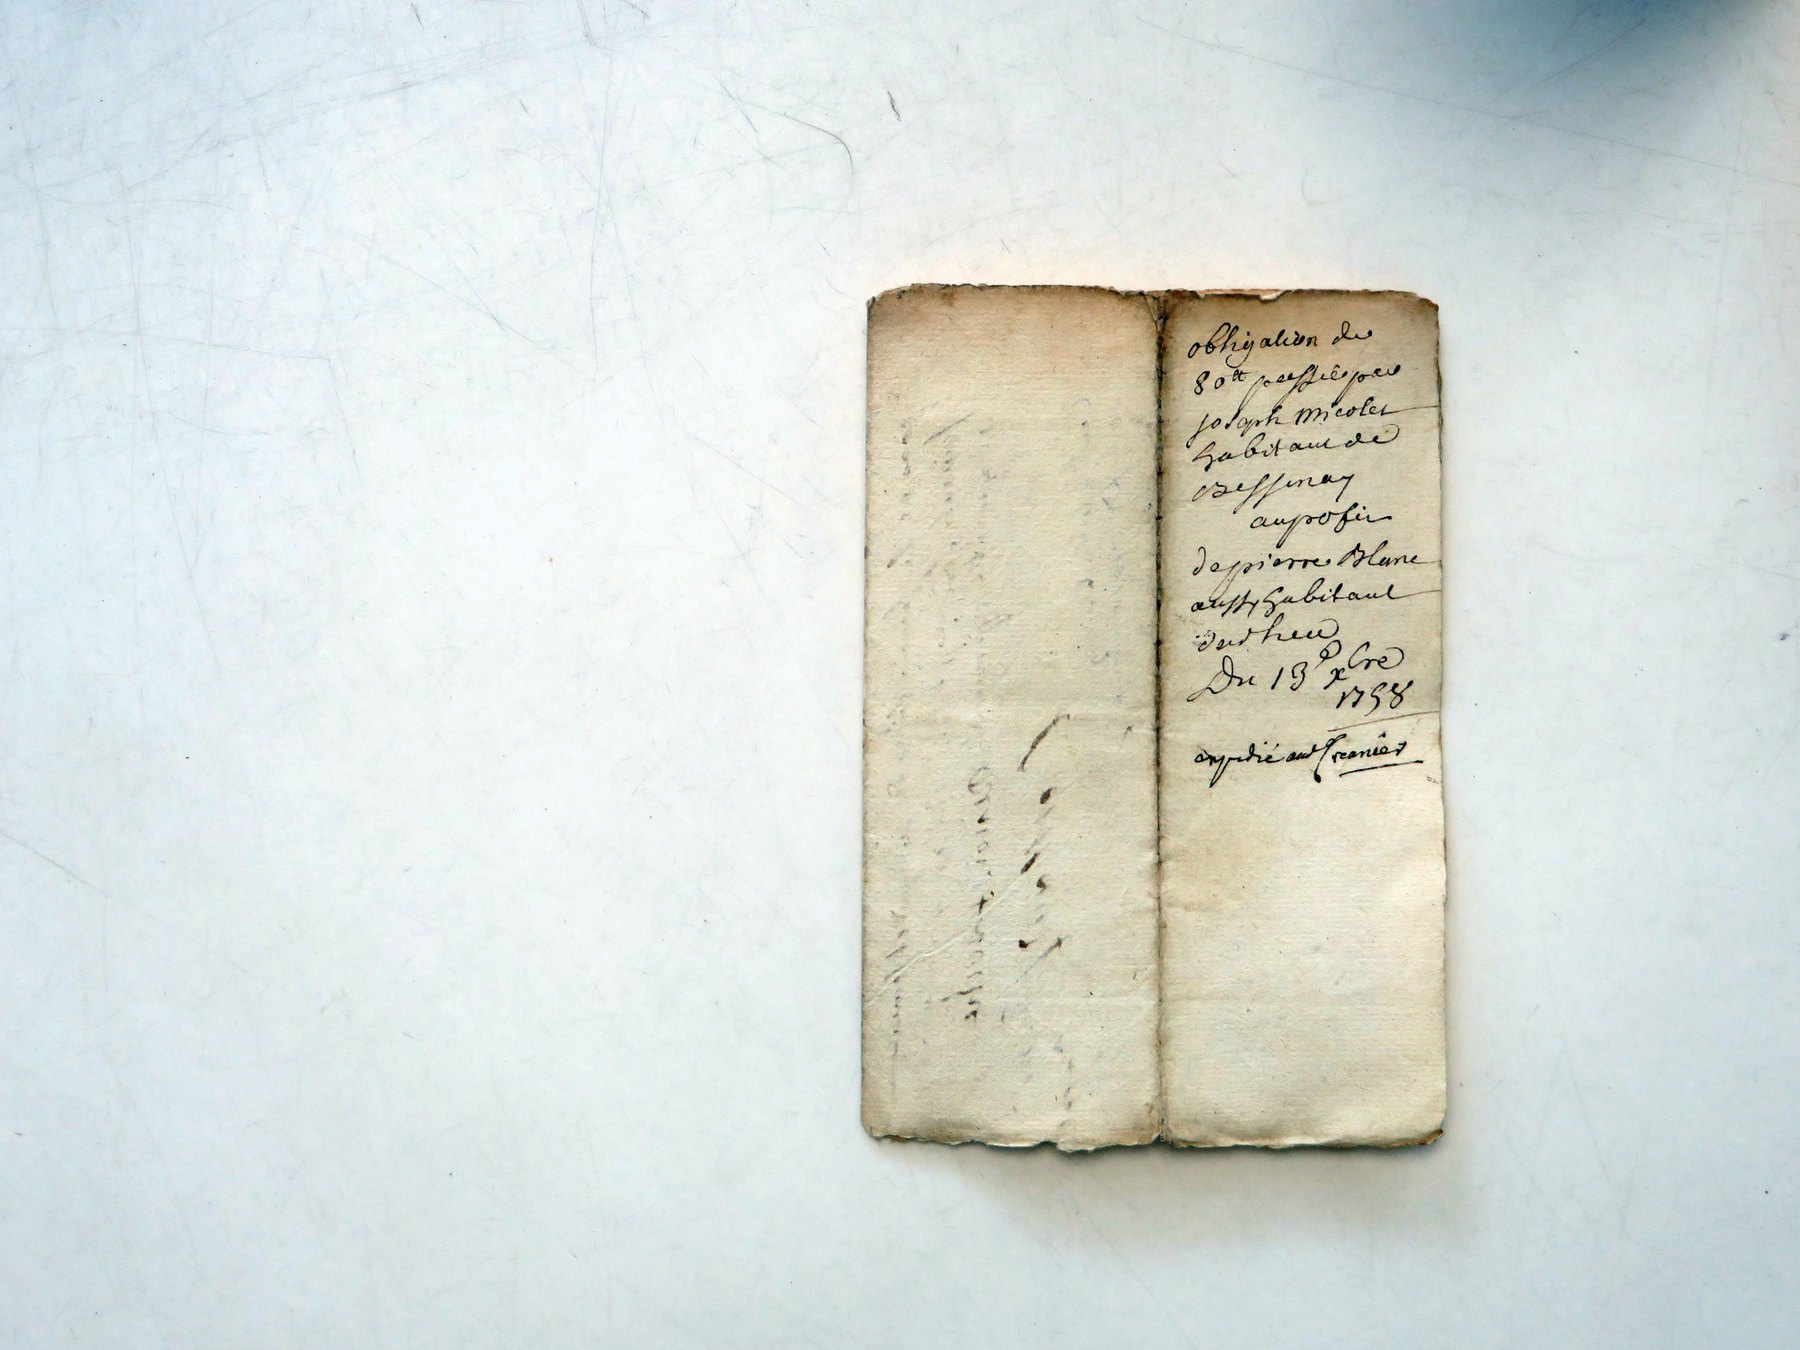 obligation de
80ᵗᵗ passée par
joseph micolet
habitant de
Bessenay
au profit
de pierre Blanc
aussy habitant
dud lieu
Du 13ᵉ xbre
1758
expédié aud Creancier